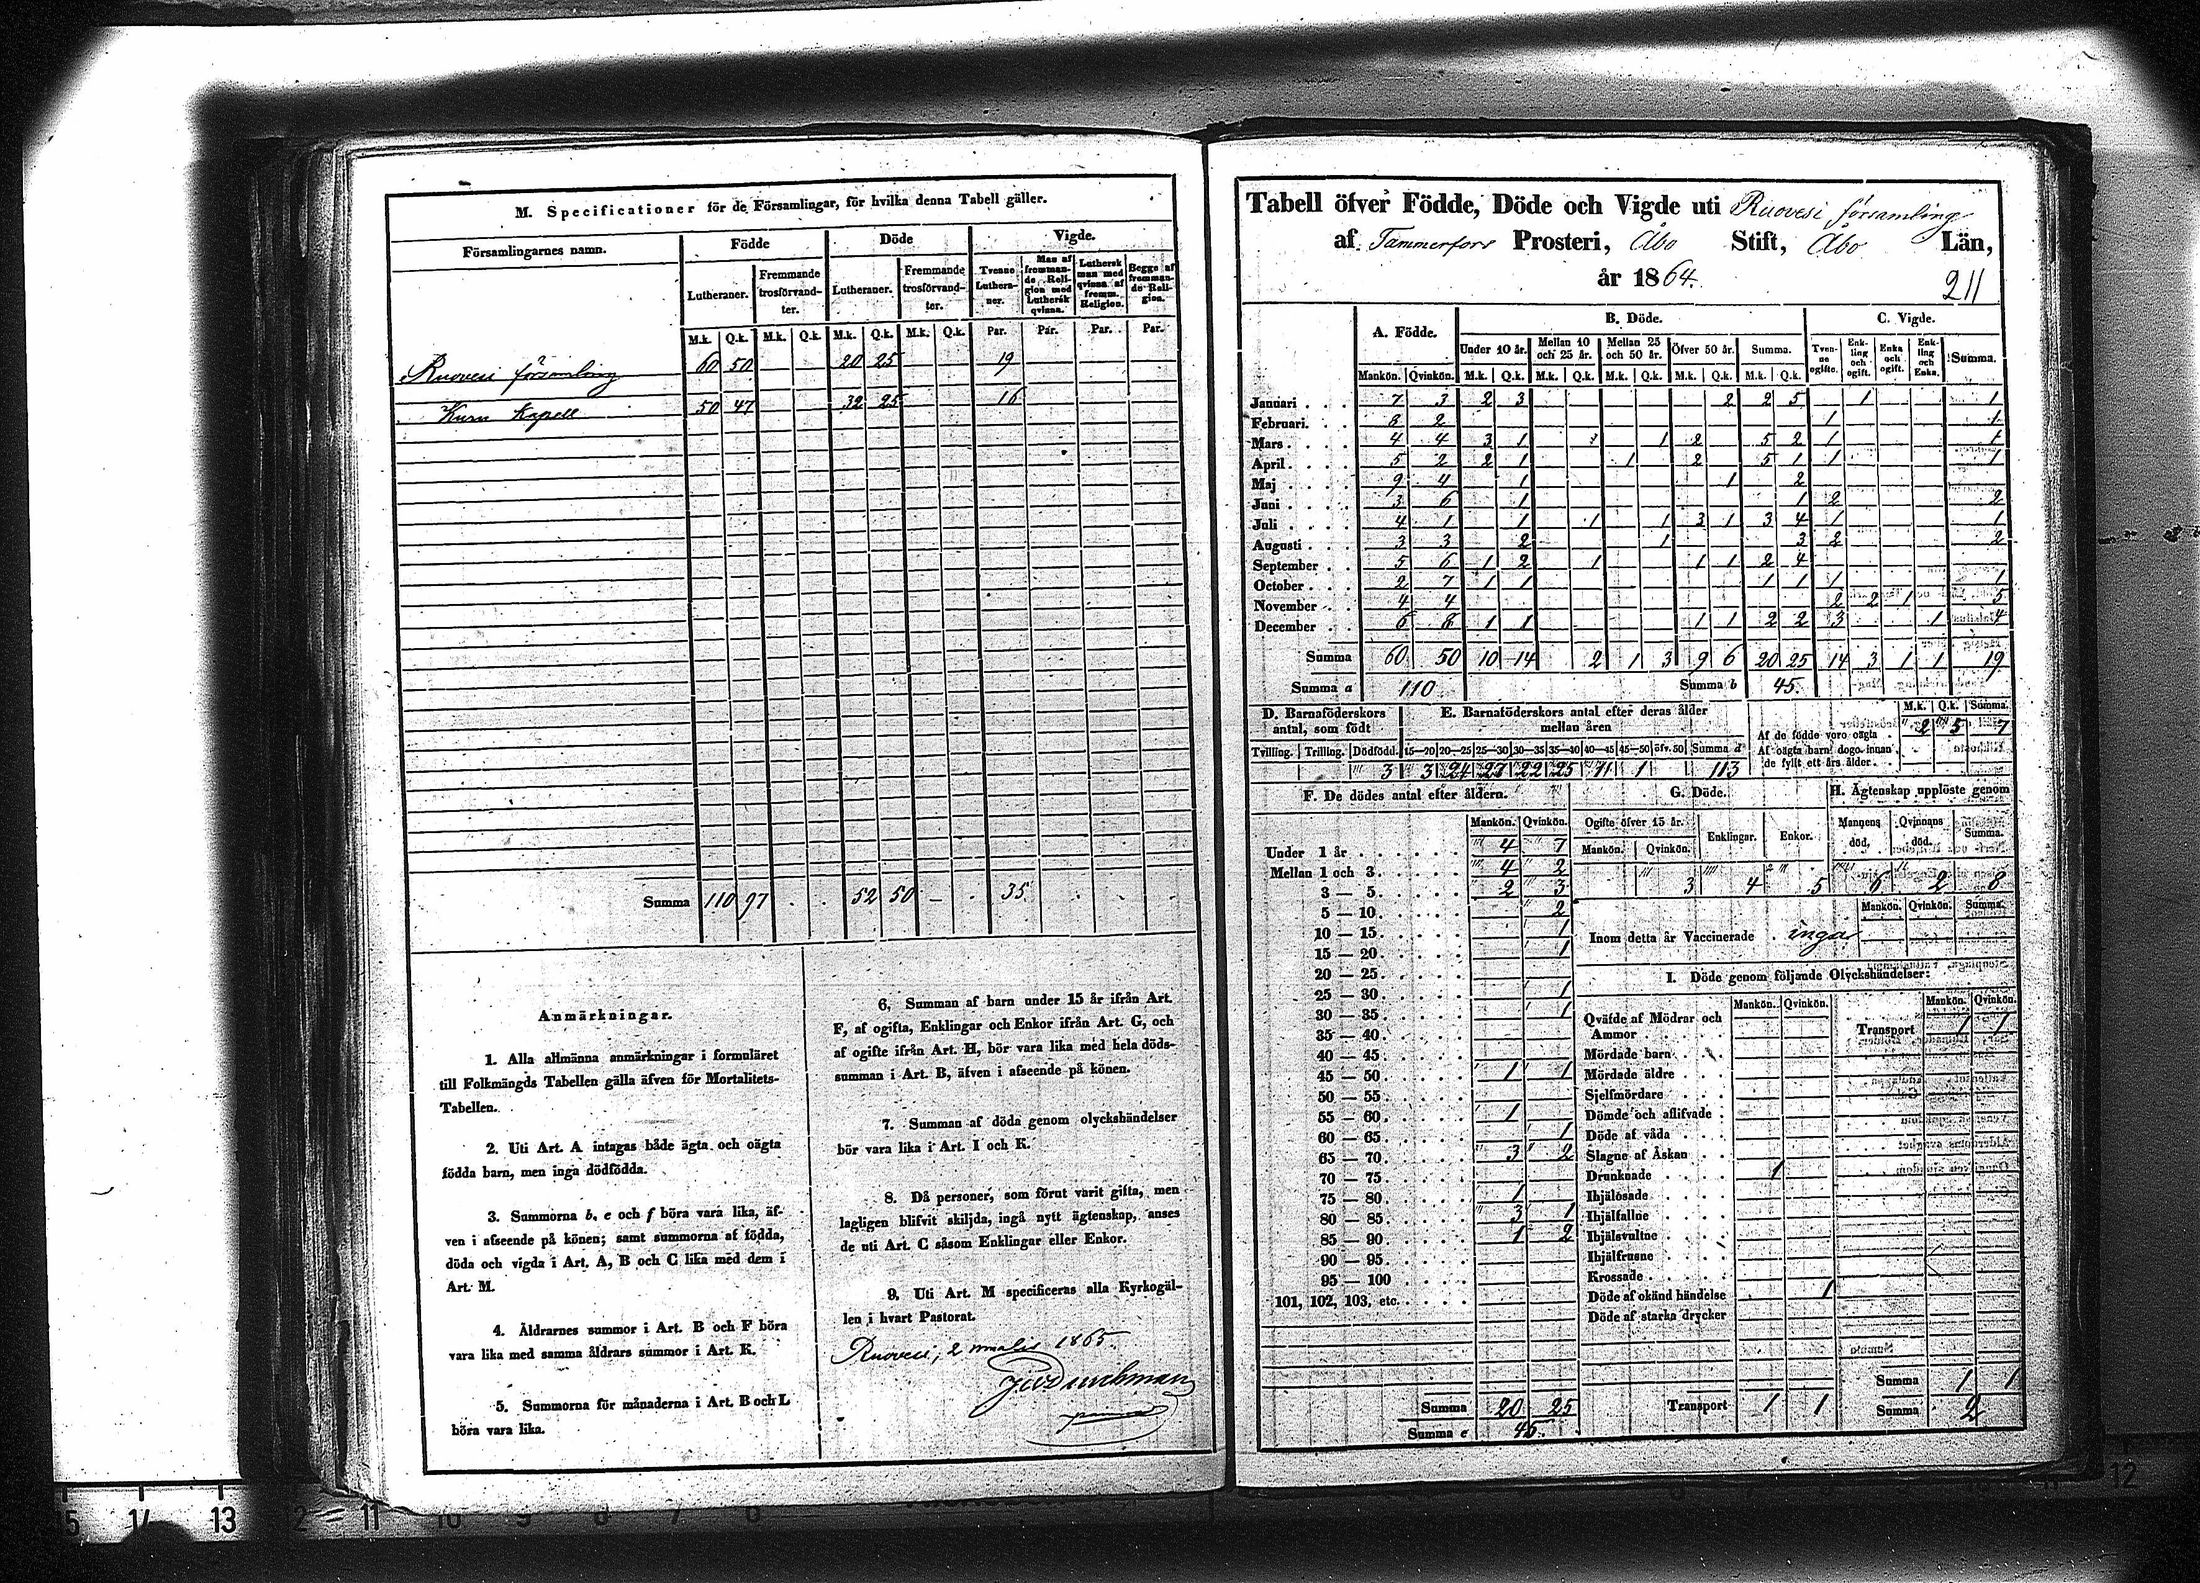 M. Specificationer för de Församlingar, för hvilka denna Tabell gäller.
Församlingarnes namn. Födde Döde Vigde.
Lutheraner. Fremmande trosförvandter. Lutheraner. Fremmande trosförvandter. Tvenne Lutheraner. Man af fremmande Religion med Luthersk qvinna. Luthersk man med qvinna af fremm. Religion. Begge af fremmande Religion.
M.k. Q.k. M.k. Q.k. M.k. Q.k. M.k. Q.k. Par. Par. Par. Par.
Ruovesi församling 60 50 20 25 19
Kuru Kapell 50 47 32 25 16
Summa 110 97 52 50 35
Anmärkningar.
1. Alla allmänna anmärkningar i formuläret
till Folkmängds Tabellen gälla äfven för Mortalitets-
Tabellen.
2. Uti Art. A intagas både ägta och oägta
födda barn, men inga dödfödda.
3. Summorna b, e och f böra vara lika, äf-
ven i afseende på könen; samt summorna af födda,
döda och vigda i Art. A, B och C lika med dem i
Art. M.
4. Åldrarnes summor i Art. B och F böra
vara lika med samma åldrars summor i Art. K.
5. Summorna för månaderna i Art. B och L
böra vara lika.
6. Summan af barn under 15 år ifrån Art.
F, af ogifta, Enklingar och Enkor ifrån Art. G, och
af ogifte ifrån Art. H, bör vara lika med hela döds-
summan i Art. B, äfven i afseende på könen.
7. Summan af döda genom olyckshändelser
bör vara lika i Art. I och K.
8. Då personer, som förut varit gifta, men
lagligen blifvit skiljda, ingå nytt ägtenskap, anses
de uti Art. C såsom Enklingar eller Enkor.
9. Uti Art. M specificeras alla Kyrkogäl-
len i hvart Pastorat.
Ruovesi, 2 1865.
Tabell öfver Födde, Döde och Vigde uti Ruovesi församling
af Tammerfors Prosteri, Åbo Stift, Åbo Län,
år 1864.
211
A. Födde. B. Döde. C. Vigde.
Under 10 år. Mellan 10 och 25 år. Mellan 25 och 50 år. Öfver 50 år. Summa. Tvenne ogifte. Enkling och ogift. Enka och ogift. Enkling och Enka. Summa.
Mankön. Qvinkön. M.k. Q.k. M.k. Q.k. M.k. Q.k. M.k. Q.k. M.k. Q.k.
Januari 7 3 2 3 2 2 5 1 1
Februari. 8 2 1 1
Mars 4 4 3 1 1 2 5 2 1 1
April 5 2 2 1 1 2 5 1 1 1
Maj 9 4 1 1 2
Juni 3 6 1 1 2 2
Juli 4 1 1 1 1 3 1 3 4 1 1
Augusti 3 3 2 1 3 2 2
September 5 6 1 2 1 1 1 2 4
October 2 7 1 1 1 1 1 1
November 4 4 2 2 1 5
December 6 8 1 1 1 1 2 2 3 1 4
Summa 60 50 10 14 2 1 3 9 6 20 25 14 3 1 1 19
Summa a 110 Summa b 45.
D. Barnaföderskors antal, som födt
Tvilling. Trilling. Dödfödd.
3
E. Barnaföderskors antal efter deras ålder mellan åren
15—20 20—25 25—30 30—35 35—40 40—45 45—50 öfv. 50 Summa d
3 24 27 22 25 11 1 113
M.k. Q.k. Summa.
Af de födde voro oägta 2 5 7
Af oägta barn dogo innan
de fyllt ett års ålder
F. De dödes antal efter åldern.
Mankön. Qvinkön.
Under 1 år 4 7
Mellan 1 och 3 4 2
3 — 5 2 3
5 — 10 2
10 — 15 1
15 — 20 1
20 — 25
25 — 30 1
30 — 35 1
35 — 40
40 — 45
45 — 50 1 1
50 — 55
55 — 60 1
60 — 65 1
65 — 70 3 2
70 — 75
75 — 80 1
80 — 85 3 1
85 — 90 1 2
90 — 95
95 — 100
101, 102, 103, etc.
Summa 20 25
Summa e 45.
G. Döde.
Ogifte öfver 15 år. Enklingar. Enkor.
Mankön. Qvinkön.
3 4 5
H. Ägtenskap upplöste genom
Mannens död. Qvinnans död. Summa.
6 2 8
Mankön. Qvinkön. Summa.
Inom detta år Vaccinerade inga
I. Döde genom följande Olyckshändelser:
Mankön. Qvinkön. Mankön. Qvinkön.
Qväfde af Mödrar och
Ammor
Mördade barn
Mördade äldre
Sjelfmördare
Dömde och aflifvade
Döde af våda
Slagne af Åskan
Drunknade 1
Ihjälosade
Ihjälfallne
Ihjälsvultne
Ihjälfrusne
Krossade
Döde af okänd händelse 1
Döde af starka drycker
Transport 1 1
Transport 1 1
Summa 1 1
Summa 2